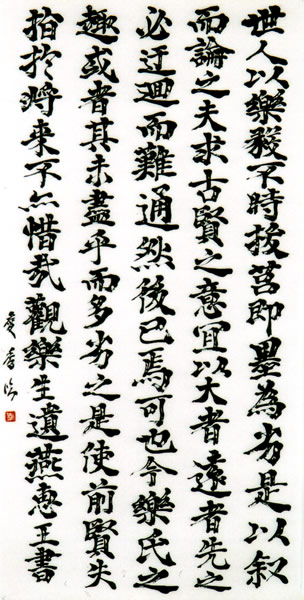 世人以樂毅不時拔莒即墨為劣是以叙
而論之夫求古賢之意冝以大者遠者先之
必迂迴而難通然後已焉可也今樂氏之
趣或者其未盡乎而多劣之是使前賢失
指於將来不亦惜哉觀樂生遺燕惠王書
臨